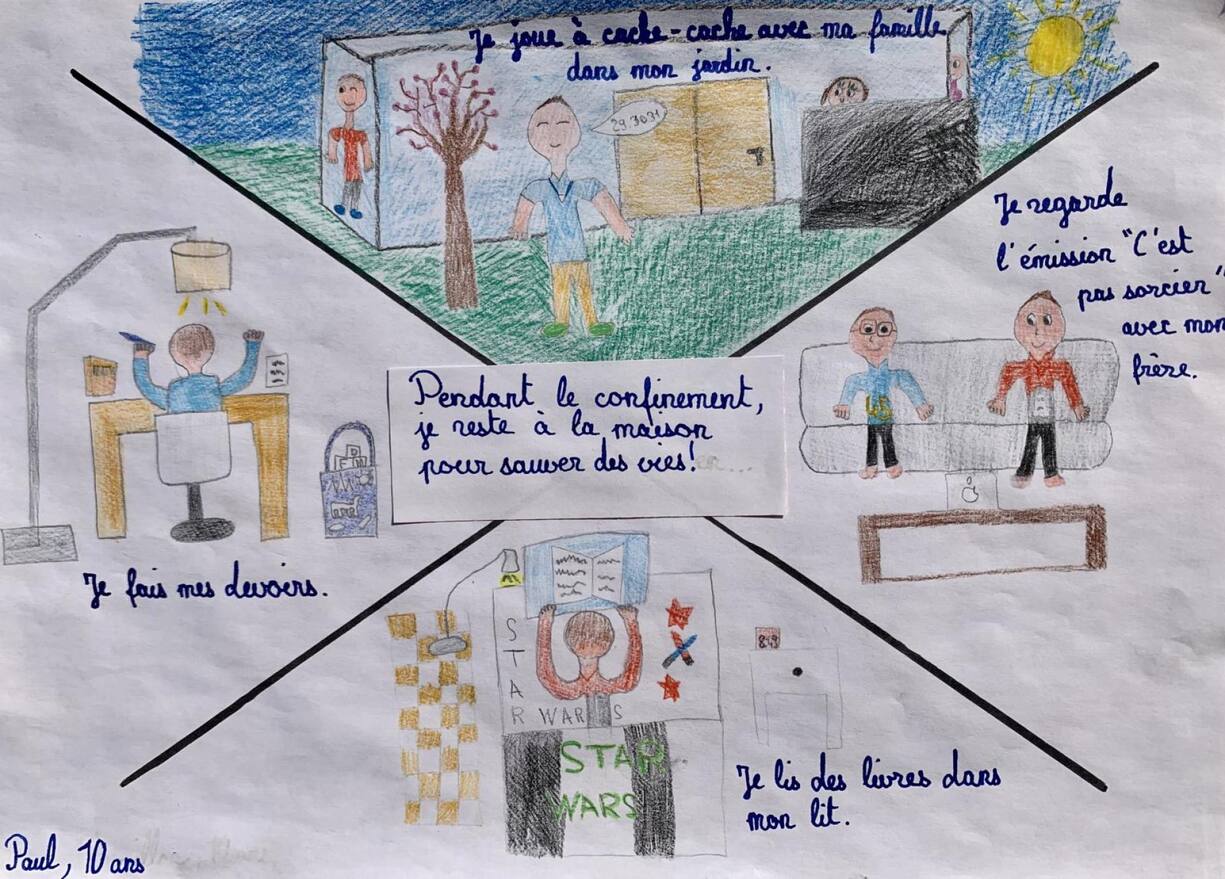 Je joue à cache-cache avec ma famille
dans mon jardin.
29.30.31
Je regarde
l'émission "C'est
pas sorcier"
avec mon
frère.
Pendant le confinement,
je reste à la maison
pour sauver des vies!
Je fais mes devoirs.
STAR
WARS
STAR
WARS
Je lis des livres dans
mon lit.
Paul, 10 ans